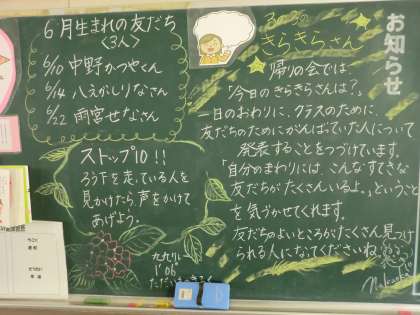 お知らせ
6月生まれの友だち
〈3人〉
6/10 中野かつやくん
6/14 八えがしりなさん
6/22 雨宮せなさん
ストップ10!!
ろう下を走っている人を
見かけたら、声をかけて
あげよう。
きらきらさん
帰りの会では、
「今日のきらきらさんは?」
一日のおわりに、クラスのために、
友だちのためにがんばっていた人について
発表することをつづけています。
「自分のまわりには、こんなすてきな
友だちがたくさんいるよ。」ということ
を気づかせてくれます。
友だちのよいところがたくさん見つけ
られる人になってくださいね。